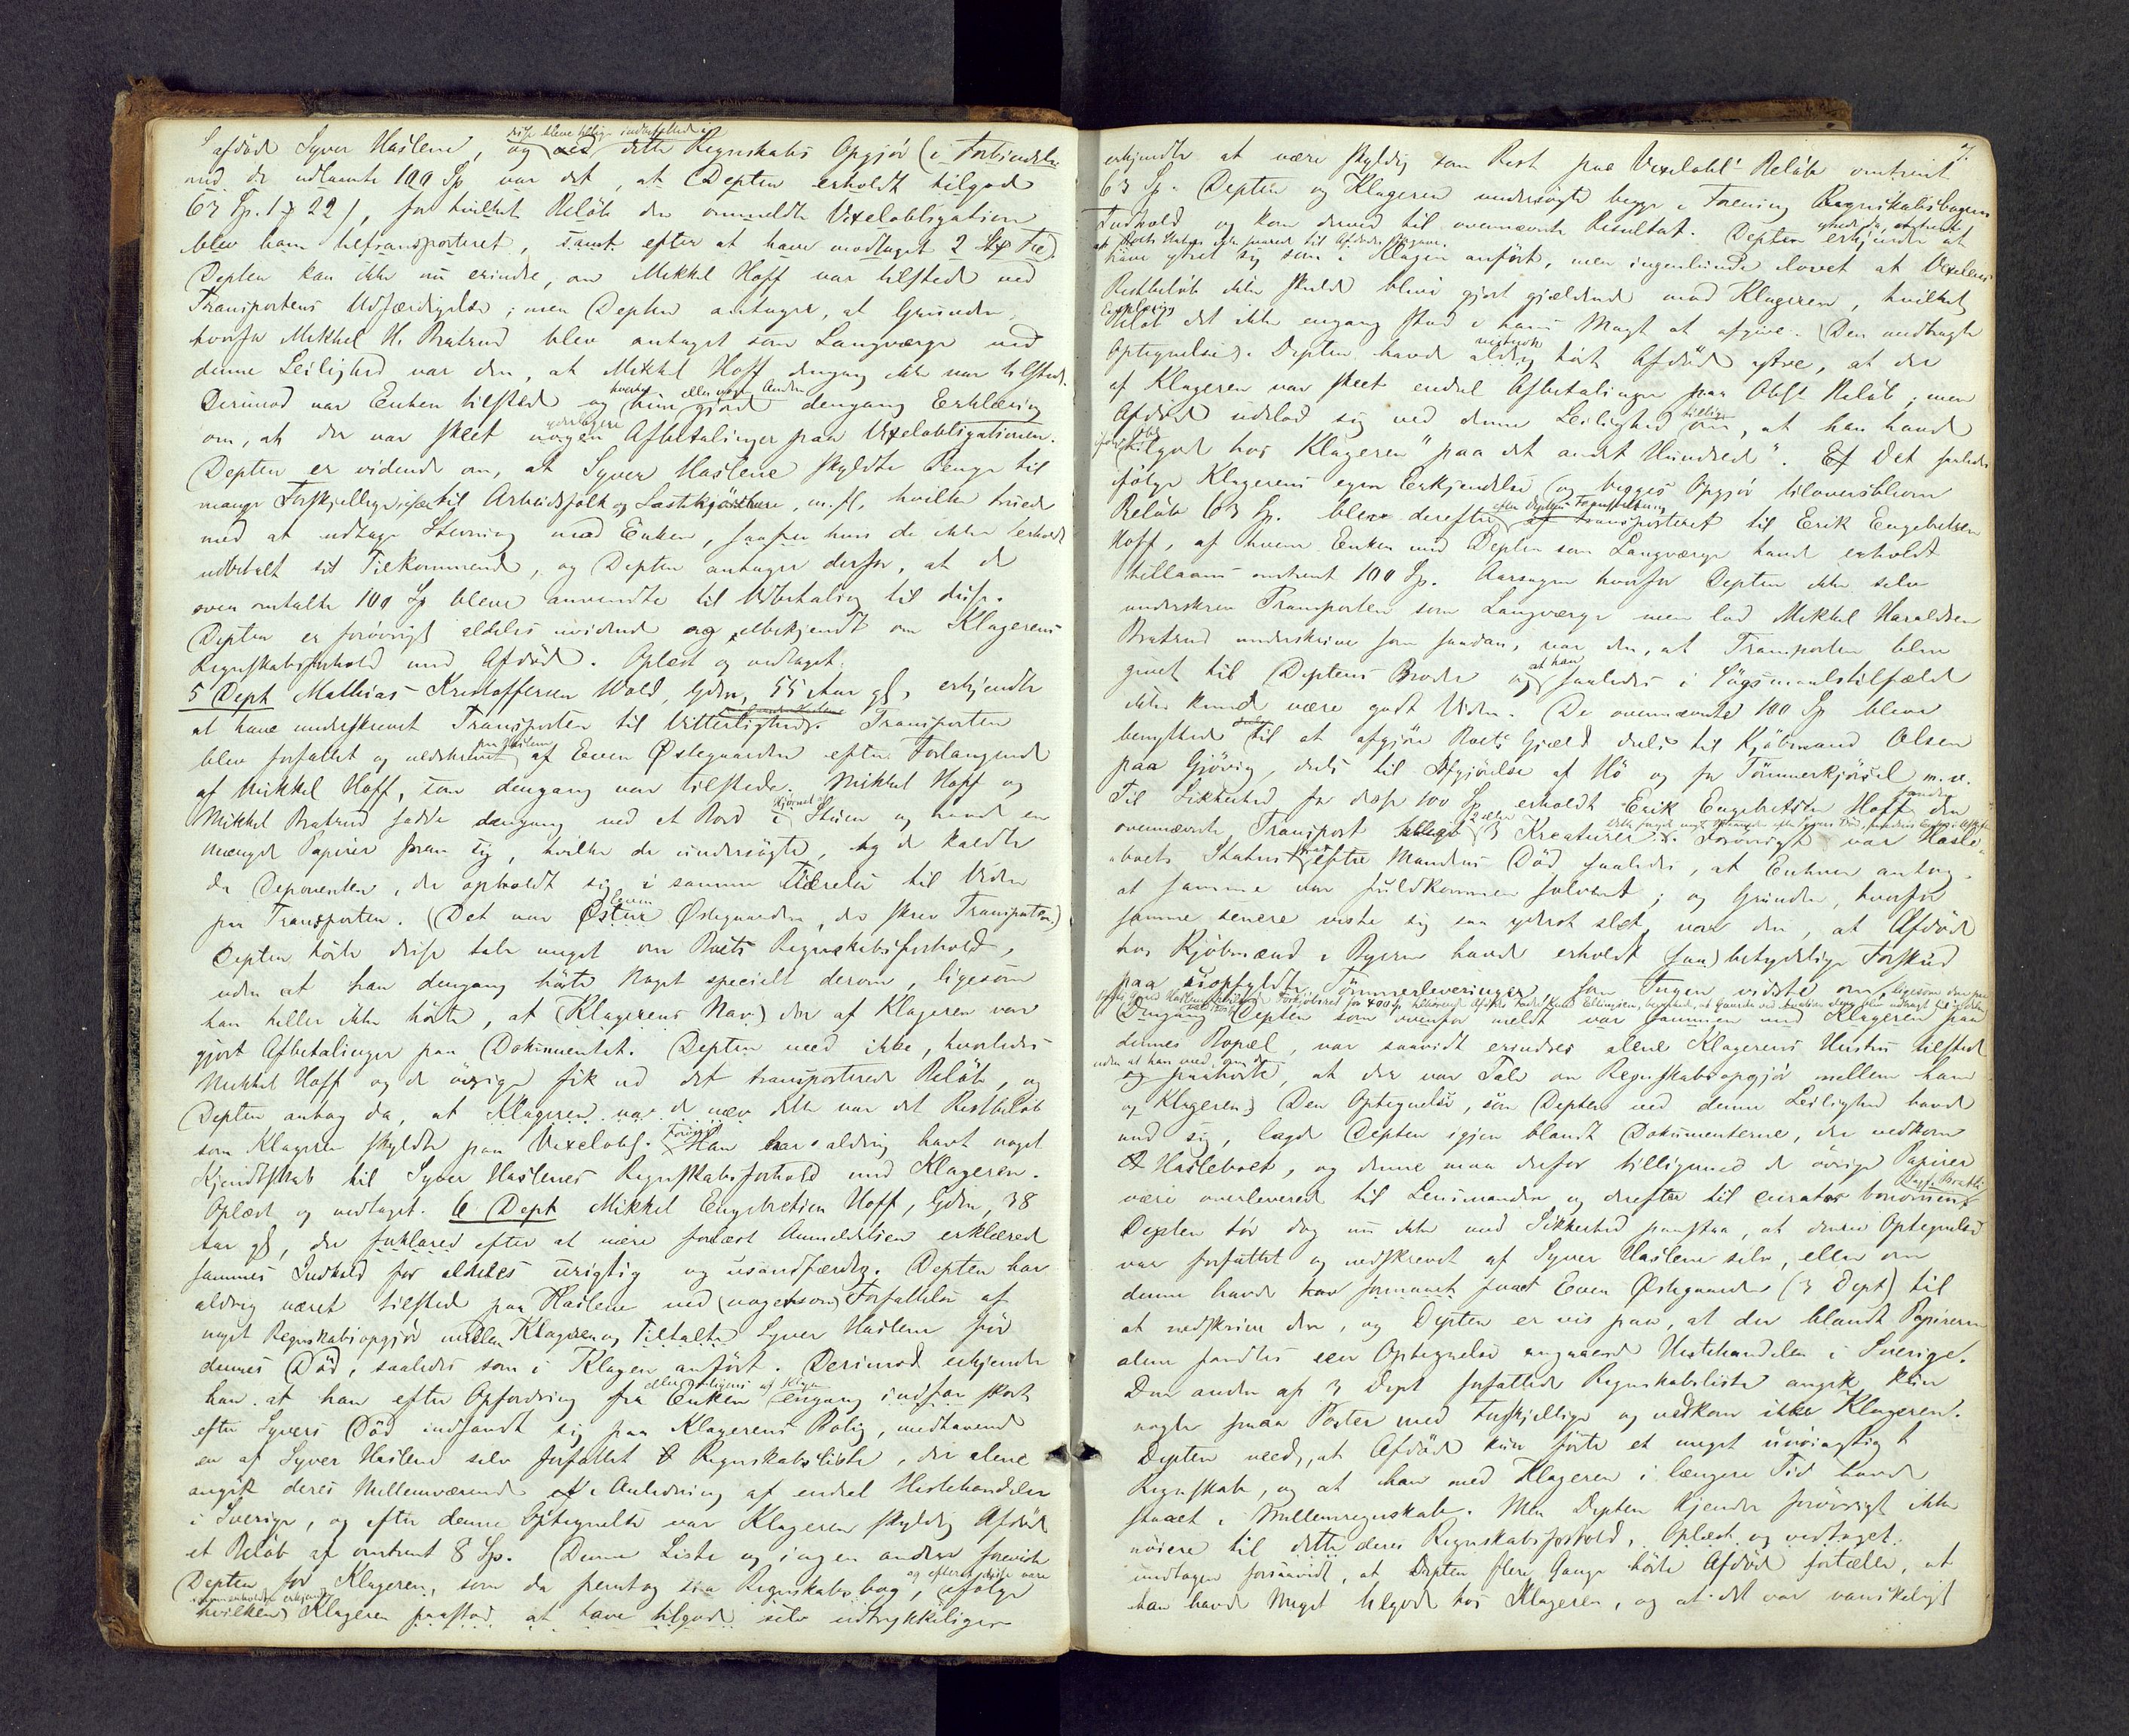 afdöde Syver Haslene, og ved dette Regnskabs Opgjör (i Forbindelse
disse bleve tillige indbefattede i
med de udlaante 100 Sp var det, at Depten erholdt tilgode
63 Sp. 1 22), for hvilket Belöb den anmeldte Vixelobligation
blev ham transporteret, samt efter at have modtaget 2
Depten kan ikke nu erindre, om Mikkel Hoff var tilstede ved
Transportens Udfærdigelse; men Depten antager, at Grunden,
hvorfor Mikkel H. Bratrud blev antaget som Laugværge ved
denne Leilighed var den, at Mikkel Hoff dengang ikke var tilstede.
Derimod var Enken tilstede og hverken hun eller nogen Anden gjorde dengang Erklæring
om, at der var skeet yderligere Afbetalinger paa Vixelobligationen.
Depten er vidende om, at Syver Haslene skyldte Penge til
mange Forskjellige, især til Arbeidsfolk og Lastekjörere, m.fl. hvilke truede
med at udtage Stevning mod Enken, saafremt de ikke erholdt
udbetalt sit Tilkommende, og Depten antager derfor, at de
oven omtalte 100 Sp bleve anvendte til Udbetaling til disse.
Depten er forövrigt aldeles uvidende og ubekjendt om Klagerens
Regnskabsforhold med Afdöde. Oplæst og vedtaget.
5 Dept Mathias Kristoffersen Wold, Gdm, 55 Aar gl, erkjendte
at have underskrevet Transporten til Vitterlighed. Transporten
blev forfattet og nedskrevet paa Haslene af Even Östegaarden efter Forlangende
af Mikkel Hoff, som dengang var tilstede. Mikkel Hoff og
Mikkel Bratrud sadde dengang ved et Bord i Hjörnet af Stuen og havde en
Mængde Papirer foran sig, hvilke de undersögte, og de kaldte
da Deponenten, der opholdt sig i samme Værelse til Viden
paa Transporten. (Det var Even Östegaarden, der skrev Transporten)
Depten hörte disse tale meget om Boets Regnskabsforhold,
uden at han dengang hörte Noget specielt derom, ligesom
han heller ikke hörte, at (Klagerens Nav) der af Klageren var
gjort Afbetalinger paa Dokumentet. Depten veed ikke, hvorledes
Mikkel Hoff og de övrige fik ud det transporterede Belöb, og
Depten antog da, at dette var det Restbelöb
som Klageren skyldte paa Vixelobl. Forövrigt Han har aldrig havt noget
Kjendtskab til Syver Haslenes Regnskabsforhold med Klageren.
Oplæst og vedtaget. 6 Dept Mikkel Engebretsen Hoff, Gdm, 38
Aar gl, der forklared efter at være forelæst Anmeldelsen erklæred
sammes Indhold for aldeles urigtig og usandfærdig. Depten har
aldrig været tilstede paa Haslene ved (nogensom) Forfattelse af
noget Regnskabsopgjör mellem Klageren og Tiltalte Syver Haslene för
dennes Död, saaledes som i Klagen anfört. Derimod erkjender
han at han efter Opfordring fra Enken engang
efter Syvers Död indfandt sig paa Klagerens Bolig, medhavende
en af Syver Haslene selv forfattet Regnskabsliste, der alene
angik deres Mellemværende i Anledning af endel Hestehandeler
i Sverige, og efter denne Optegnelse var Klageren skyldig Afdöde
et Belöb af omtrent 8 Sp. Denne Liste og ingen anden foreviste
Depten for Klageren, som da fremtog sin Regnskabsbog, ifölge
hvilken Klageren paastod at have tilgode selv udtrykkeligen
7.
erkjendte at være skyldig som Rest paa Vixelobl. Belöb omtrent
63 Sp. Depten og Klageren undersögte begge i Forening Regnskabsbogens
Indhold og kom derved til ovennævnte Resultat. Depten erkjender at
have ytret sig som i Klagen anfört, men ingenlunde lovet at Vixelens
Restbelöb ikke skulde blive gjort gjældende mod Klageren, hvilket
Löfte det ikke engang stod i hans Magt at afgive. (Den medbragte
Optegnelse). Depten havde aldrig hört Afdöde ytre, at der
af Klageren var skeet endel Afbetalinger paa Obl. Belöb; men
Afdöde udelod sig ved denne Leilighed tillige om, at han havde
tilgode hos Klageren "paa det andet Hundrede". Det saaledes
ifölge Klagerens egen Erkjendelse og begges Opgjör tiloversblevne
Belöb 63 Sp. blev derefter efter Deptens Foranstaltning transporteret til Erik Engebretsen
Hoff, af hvem Enken med Depten som Laugværge havde erholdt
tillaans omtrent 100 Sp. Aarsagen hvorfor Depten ikke selv
underskrev Transporten som Laugværge men lod Mikkel Haraldsen
Bratrud underskrive som saadan, var den, at Transporten blev
givet til Deptens Broder og at han saaledes i Sögsmaalstilfælde
ikke kunde være godt Viden. De ovennævnte 100 Sp bleve
benyttede til at afgjöre Boets Gjæld dels til Kjöbmand Olsen
paa Gjövig, dels til Afgjörelse af Hö og for Tömmerkjörsel m.v.
Til Sikkerhed for disse 100 Sp erholdt Erik Engebretsen Hoff den
ovennævnte Transport 2 eller 3 Kreaturer. Forövrigt var Hasle-
boets Status efter Mandens Död saaledes, at Enhver antog,
at samme var fuldkommen solvent; og Grunden, hvorfor
samme senere viste sig saa yderst slet, var den, at Afdöde
hos Kjöbmænd i Byerne havde erholdt (saa) betydelige Forskud
paa uopfyldte Tömmerleveringer, som Ingen vidste om,
Dengang Depten som ovenfor meldt var sammen med Klageren paa
dennes Bopæl, var saavidt erindres alene Klagerens Hustru tilstede
og paahörte, at der var Tale om Regnskabsopgjör mellem ham
og Klageren. Den Optegnelse, som Depten ved denne Leilighed havde
med sig, lagde Depten igjen blandt Dokumenterne, der vedkom
Hasleboet, og denne maa derfor tilligemed de övrige Papirer
være overleveret til Lensmanden og derefter til curator bonorum.
Depten tör dog nu ikke med Sikkerhed paastaa, at denne Optegnelse
var forfattet og nedskrevet af Syver Haslene selv, eller om
denne havde formaaet Even Östegaarden (3 Dept) til
at nedskrive den, og Depten er vis paa, at der blandt Papirerne
alene fandtes een Optegnelse angaaende Hestehandelen i Sverige.
Den anden af 3 Dept forfattede Regnskabsliste angik kun
nogle smaa Poster med Forskjellige og vedkom ikke Klageren.
Depten veed, at Afdöde kun förte et meget unöiagtigt
Regnskab, og at han med Klageren i længere Tid havde
staaet i Mellemregnskab. Men Depten kjender forövrigt ikke
nöiere til dette deres Regnskabsforhold, Oplæst og vedtaget.
undtagen forsaavidt, at Depten flere Gange hörte Afdöde fortælle, at
han havde Meget tilgode hos Klageren, og at det var vanskeligt